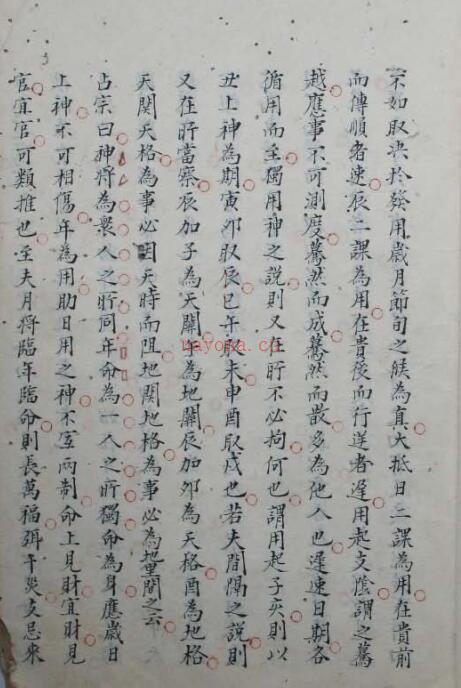 不如取決於發用歲月節旬之候為直大抵日二課為用在貴前
而傳順者速辰二課為用在貴後而行逆者遲用起支陰謂之驀
越應事不可測度驀然而成驀然而散多為他人也遲速日期各
循用而至獨用神之說則又在所不必拘何也謂用起子亥則以
丑上神為期寅夘取辰巳午取未申酉取戌也若夫間隔之說則
又在所當察辰加子為天關午為地關辰加夘為天格酉為地格
天関天格為事必因天時而阻地関地格為事必為地里間之云
占宗曰神將為衆人之所同年命為一人之所獨命為身應歲日
上神不可相傷年為用助日用之神不宜兩制命上見財宜財見
官宜官可類推也至夫月將臨年臨命則長萬福弭千災支忌來
nayona.cn